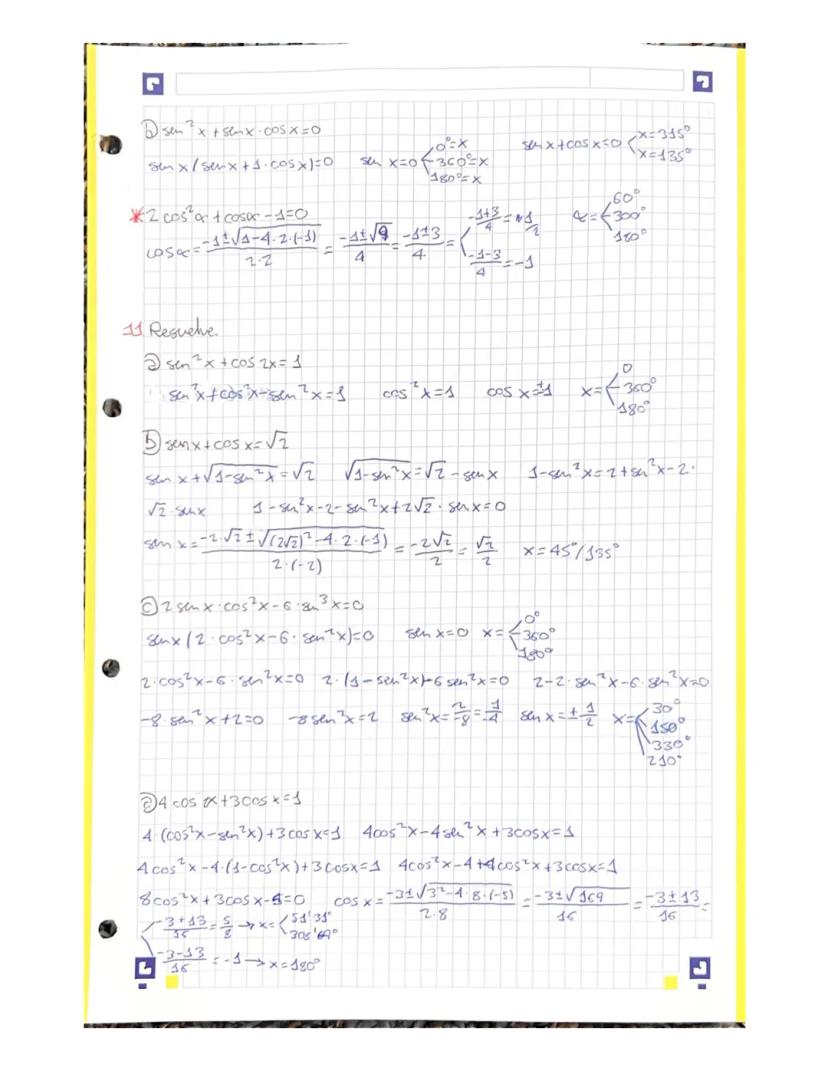 b) sen²x + senx · cosx = 0
sen x (senx + 1 · cosx) = 0   sen x = 0 < 0° = x, 360° = x, 180° = x   sen x + cos x = 0 < x = 315°, x = 135°
*2 cos²α + cosα - 1 = 0
cosα = (-1 ± √(1 - 4 · 2 · (-1)))/(2 · 2) = (-1 ± √9)/4 = (-1 ± 3)/4 = < (-1+3)/4 = 1/2, (-1-3)/4 = -1   α = < 60°, 300°, 180°
11 Resuelve.
a) sen²x + cos 2x = 1
sen²x + cos²x - sen²x = 1   cos²x = 1   cos x = ±1   x = < 0, 360°, 180°
b) senx + cosx = √2
sen x + √(1 - sen²x) = √2   √(1 - sen²x) = √2 - senx   1 - sen²x = 2 + sen²x - 2 ·
√2 · senx   1 - sen²x - 2 - sen²x + 2√2 · senx = 0
sen x = (-2 · √2 ± √((2√2)² - 4 · 2 · (-1)))/(2 · (-2)) = (-2√2)/2 = √2/2   x = 45°/135°
c) 2 senx · cos²x - 6 · sen³x = 0
senx (2 · cos²x - 6 · sen²x) = 0   sen x = 0   x = < 0°, 360°, 180°
2 · cos²x - 6 · sen²x = 0   2 · (1 - sen²x) - 6 sen²x = 0   2 - 2 · sen²x - 6 · sen²x = 0
-8 · sen²x + 2 = 0   -8 sen²x = 2   sen²x = 2/-8 = 1/-4   sen x = ± 1/2   x = < 30°, 150°, 330°, 210°
a) 4 cos x + 3 cos x = 1
4 · (cos²x - sen²x) + 3 cosx = 1   4cos²x - 4 sen²x + 3cosx = 1
4 cos²x - 4 · (1 - cos²x) + 3 cosx = 1   4cos²x - 4 + 4cos²x + 3cosx = 1
8cos²x + 3cosx - 5 = 0   cosx = (-3 ± √(3² - 4 · 8 · (-5)))/(2 · 8) = (-3 ± √169)/16 = (-3 ± 13)/16 =
(-3+13)/16 = 5/8 → x = < 51'31°, 308'69°
(-3-13)/16 = -1 → x = 180°